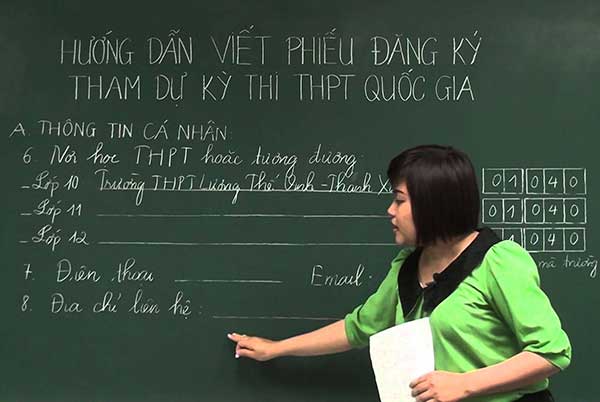 HƯỚNG DẪN VIẾT PHIẾU ĐĂNG KÝ
THAM DỰ KỲ THI THPT QUỐC GIA
A. THÔNG TIN CÁ NHÂN:
6. Nơi học THPT hoặc tương đương:
- Lớp 10 Trường THPT Lương Thế Vinh - Thành 01 040
- Lớp 11 01 040
- Lớp 12 1 040
mã trường
7. Điện thoại Email:
8. Địa chỉ liên hệ: